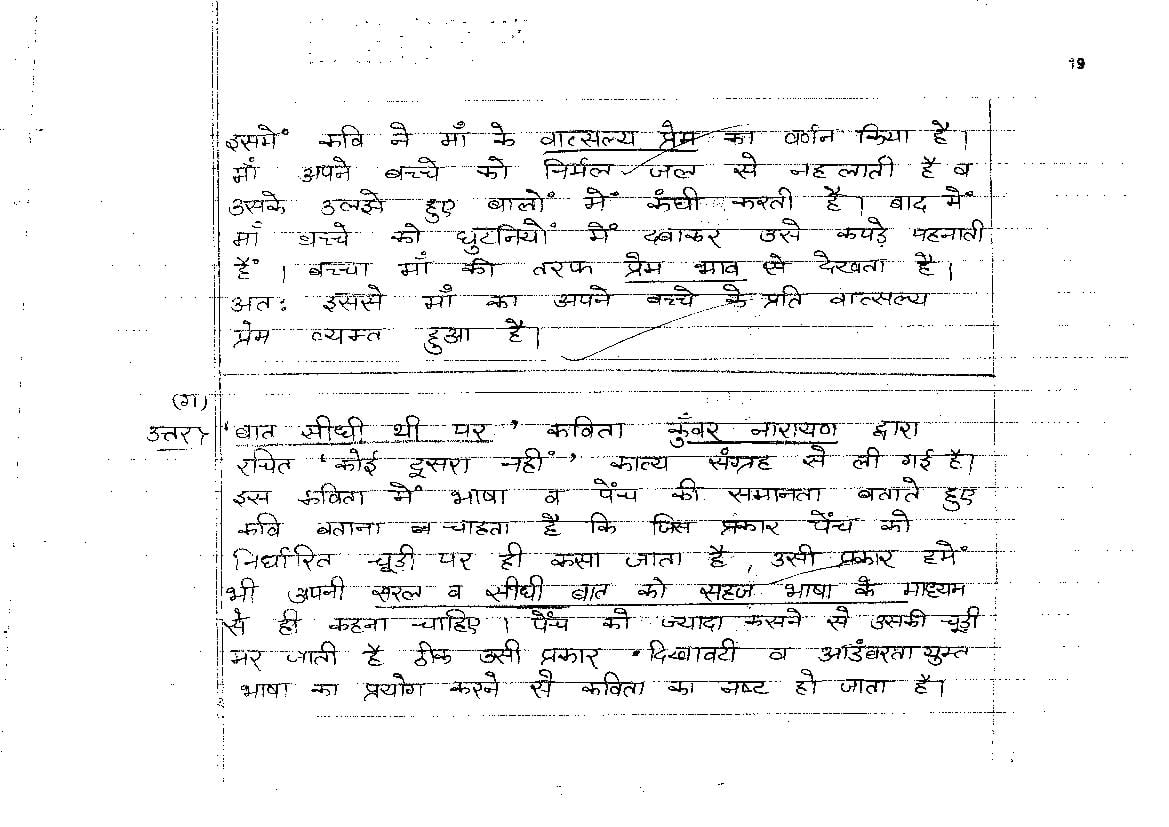 19
इसमें कवि ने माँ के वात्सल्य प्रेम का वर्णन किया है।
माँ अपने बच्चे को निर्मल जल से नहलाती है व
उसके उलझे हुए बालों में कंघी करती है। बाद में
माँ बच्चे को घुटनियों में दबाकर उसे कपड़े पहनाती
हैं। बच्चा माँ की तरफ प्रेम भाव से देखता है।
अतः इससे माँ का अपने बच्चे के प्रति वात्सल्य
प्रेम व्यक्त हुआ है।
(ग)
उत्तर> 'बात सीधी थी पर' कविता कुँवर नारायण द्वारा
रचित 'कोई दूसरा नहीं' काव्य संग्रह से ली गई है।
इस कविता में भाषा व पेंच की समानता बताते हुए
कवि बताना चाहता है कि जिस प्रकार पेंच को
निर्धारित चूड़ी पर ही कसा जाता है, उसी प्रकार हमें
भी अपनी सरल व सीधी बात को सहज भाषा के माध्यम
से ही कहना चाहिए। पेंच को ज्यादा कसने से उसकी चूड़ी
मर जाती है ठीक उसी प्रकार दिखावटी व आडंबरता युक्त
भाषा का प्रयोग करने से कविता का नष्ट हो जाता है।